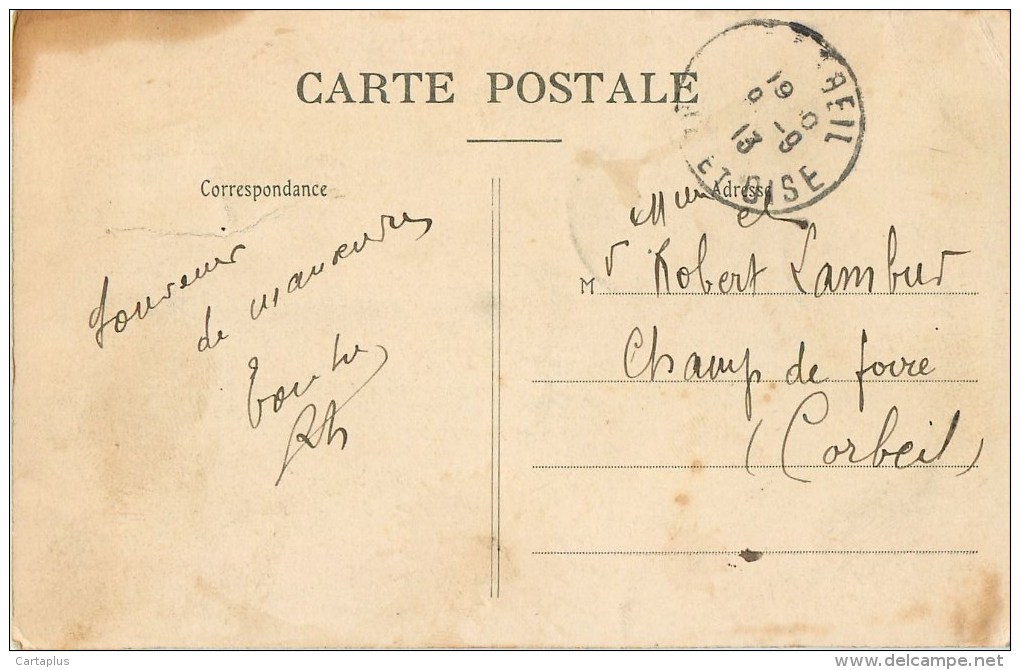 CARTE POSTALE
Correspondance
Souvenir
de manœuvres
Adresse
Mme et
Mr Robert Lambert
Champ de foire
(Corbeil)
BEIL
ET OISE
19
13
Cartaplus
www.delcampe.net